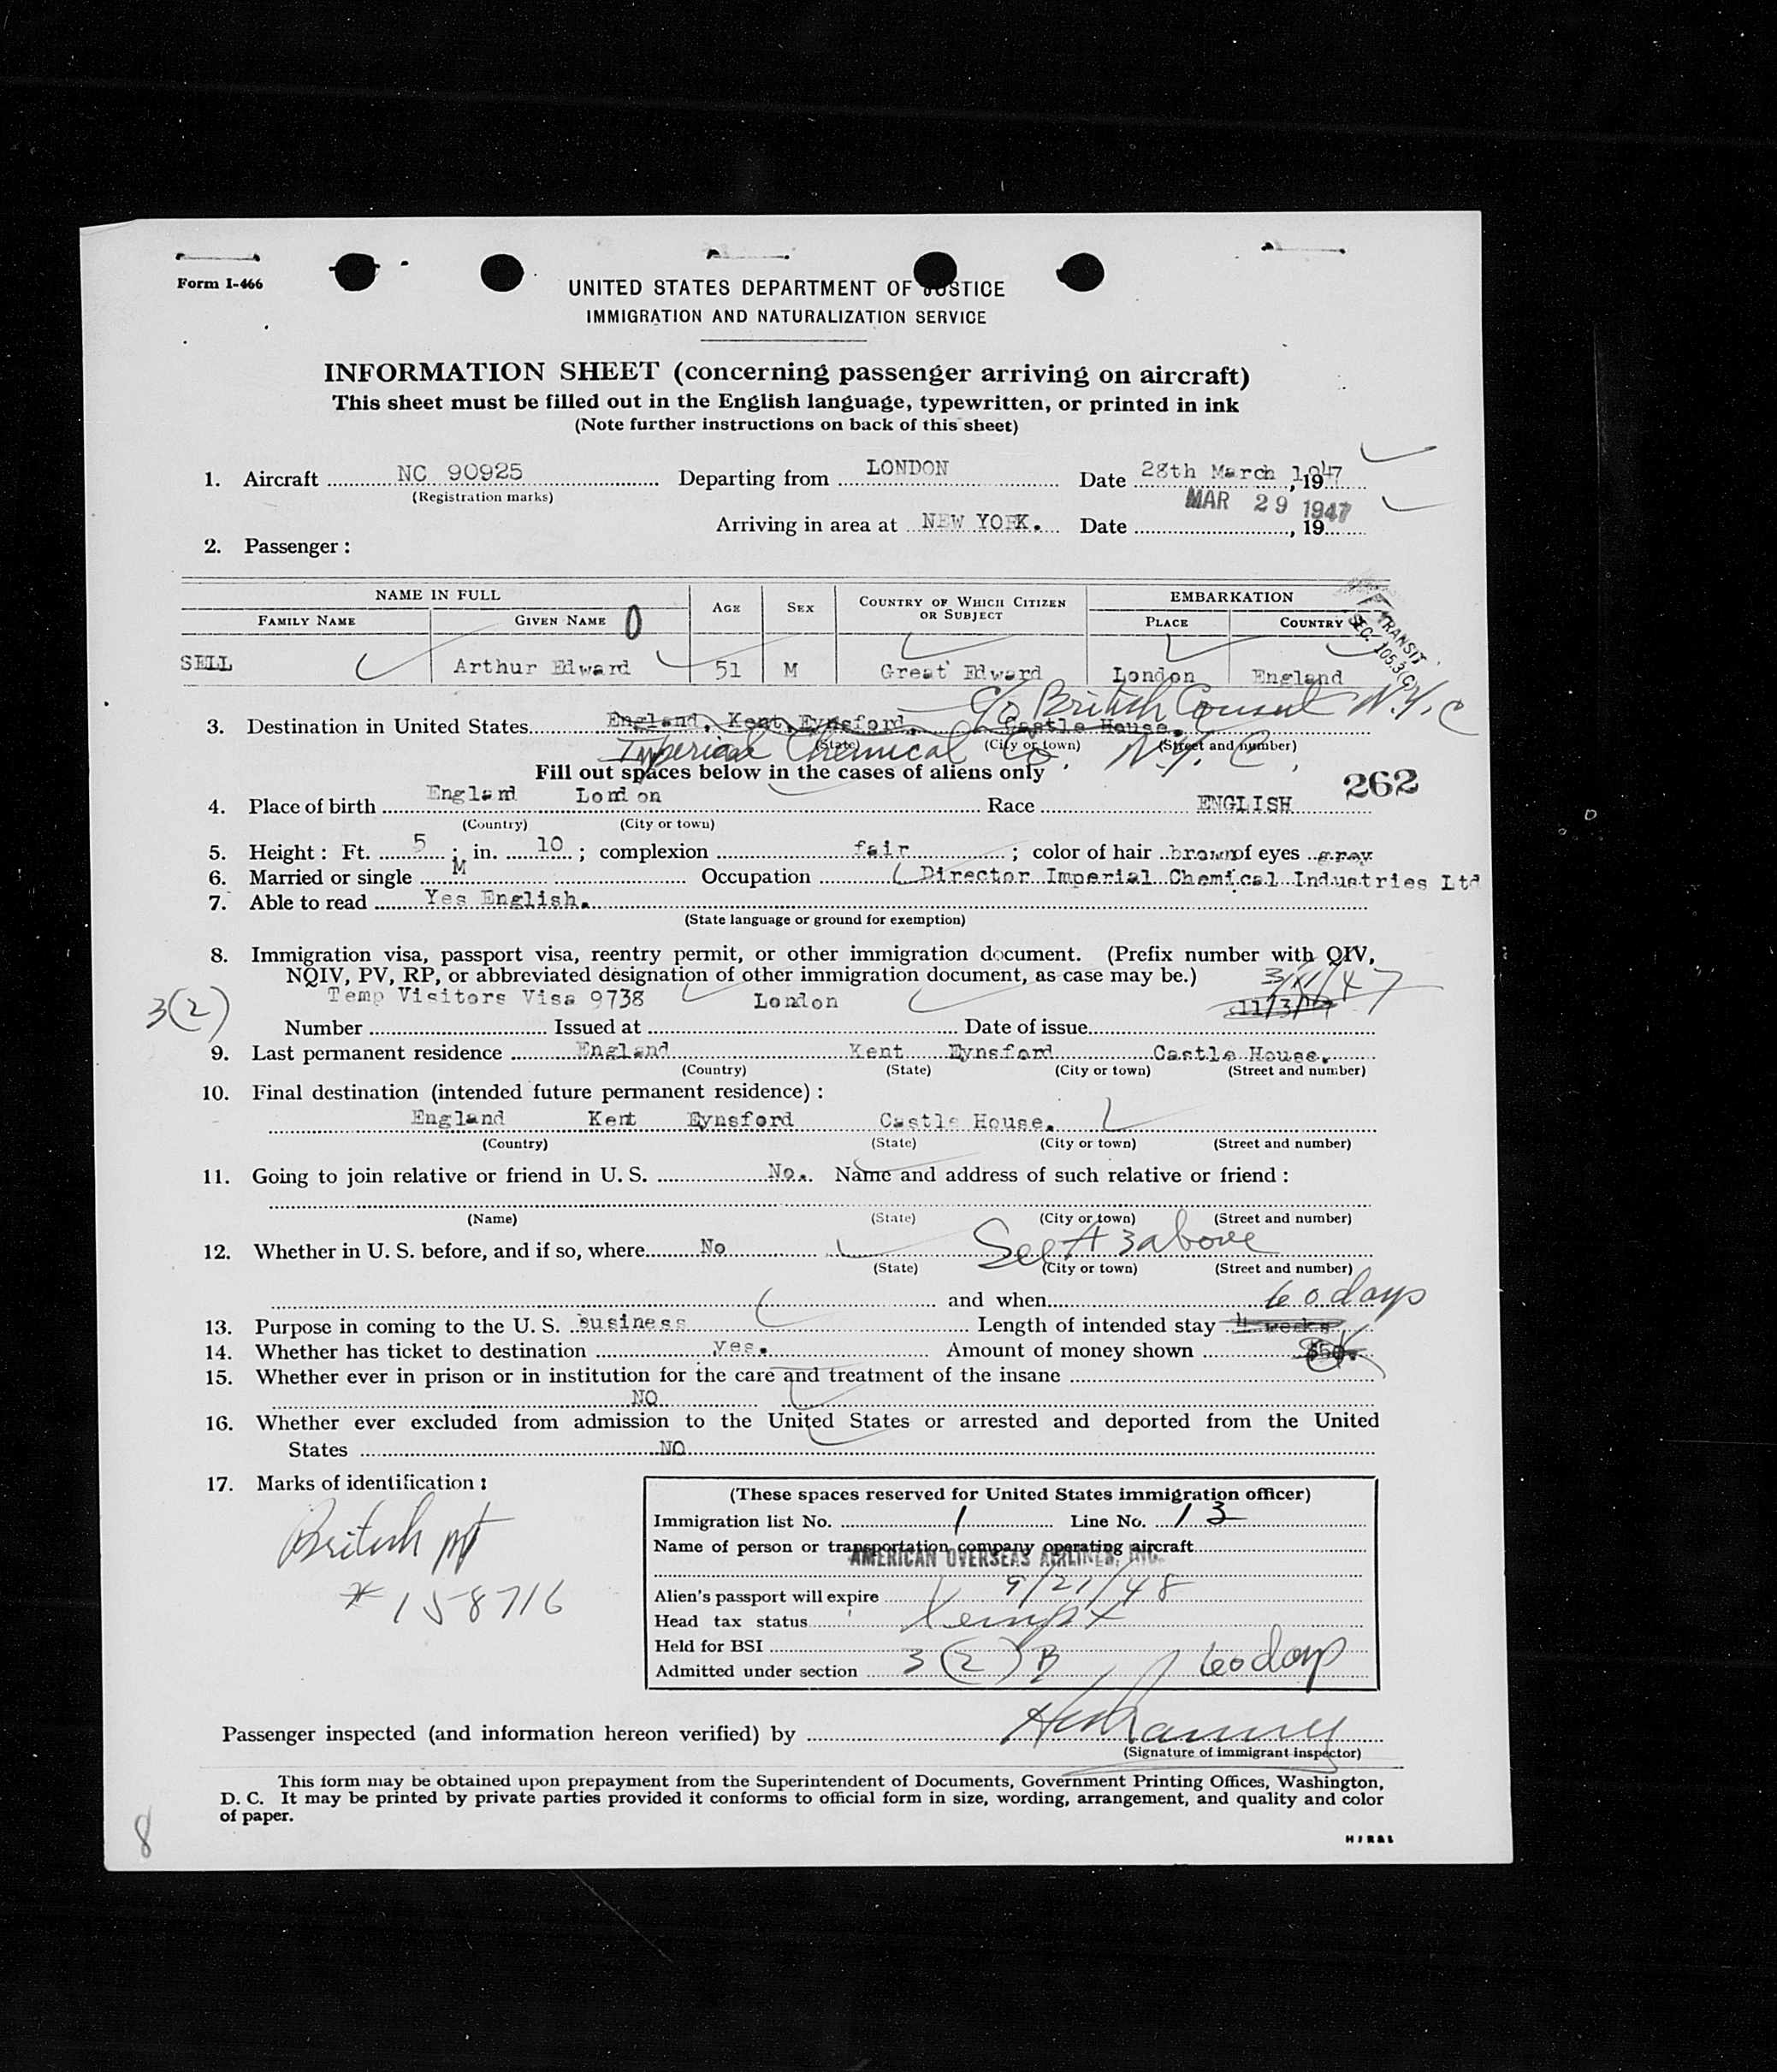 Form I-466
UNITED STATES DEPARTMENT OF JUSTICE
IMMIGRATION AND NATURALIZATION SERVICE
INFORMATION SHEET (concerning passenger arriving on aircraft)
This sheet must be filled out in the English language, typewritten, or printed in ink
(Note further instructions on back of this sheet)
1. Aircraft NC 90925 Departing from LONDON Date 28th March 1947, 19
(Registration marks)
MAR 29 1947
Arriving in area at NEW YORK. Date , 19
2. Passenger:
NAME IN FULL AGE SEX COUNTRY OF WHICH CITIZEN OR SUBJECT EMBARKATION
FAMILY NAME GIVEN NAME 0 PLACE COUNTRY
TRANSIT
SEC. 105.3(C)
SELL Arthur Edward 51 M Great Edward London England
C/o British Consul N.Y.C
3. Destination in United States England, Kent, Eynsford, Castle House.
(State) (City or town) (Street and number)
Imperial Chemical Co. N.Y.C.
Fill out spaces below in the cases of aliens only
262
4. Place of birth England London Race ENGLISH
(Country) (City or town)
5. Height: Ft. 5 ; in. 10 ; complexion fair ; color of hair brown of eyes grey
6. Married or single M Occupation Director Imperial Chemical Industries Ltd
7. Able to read Yes English.
(State language or ground for exemption)
8. Immigration visa, passport visa, reentry permit, or other immigration document. (Prefix number with QIV,
NQIV, PV, RP, or abbreviated designation of other immigration document, as case may be.)
3/11/47
3(2)
Temp Visitors Visa 9738 London 11/3/47
Number Issued at Date of issue
9. Last permanent residence England Kent Eynsford Castle House.
(Country) (State) (City or town) (Street and number)
10. Final destination (intended future permanent residence):
England Kent Eynsford Castle House.
(Country) (State) (City or town) (Street and number)
11. Going to join relative or friend in U. S. No. Name and address of such relative or friend:
(Name) (State) (City or town) (Street and number)
12. Whether in U. S. before, and if so, where No See # 3 above
(State) (City or town) (Street and number)
and when
60 days
13. Purpose in coming to the U. S. Business Length of intended stay 4 weeks
14. Whether has ticket to destination yes. Amount of money shown $50.
15. Whether ever in prison or in institution for the care and treatment of the insane
NO
16. Whether ever excluded from admission to the United States or arrested and deported from the United
States NO
17. Marks of identification:
British ppt
# 158716
(These spaces reserved for United States immigration officer)
Immigration list No. 1 Line No. 13
Name of person or transportation company operating aircraft
AMERICAN OVERSEAS AIRLINES, INC.
Alien's passport will expire 9/21/48
Head tax status Xempt
Held for BSI
Admitted under section 3(2)B 60 days
Passenger inspected (and information hereon verified) by
(Signature of immigrant inspector)
This form may be obtained upon prepayment from the Superintendent of Documents, Government Printing Offices, Washington,
D. C. It may be printed by private parties provided it conforms to official form in size, wording, arrangement, and quality and color
of paper.
8